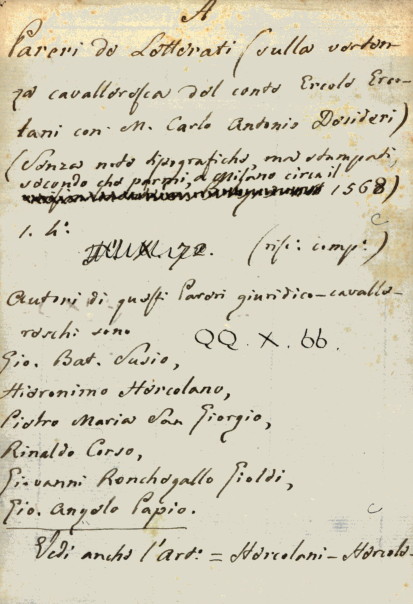 A
Pareri de Letterati (sulla verten-
za cavalleresca del conte Ercole Erco-
lani con M. Carlo Antonio Desideri)
(Senza note tipografiche, ma stampati,
secondo che parmi, a Milano circa il
1568)
1. 4°.
(risc: comp:)
Autori di questi Pareri giuridico-cavalle-
reschi sono
QQ. X. 66.
Gio. Bat. Susio,
Hieronimo Hercolano,
Pietro Maria San Giorgio,
Rinaldo Corso,
Giovanni Ronchegallo Gioldi,
Gio. Angelo Papio.
Vedi anche l'Art: = Hercolani-Hercole-